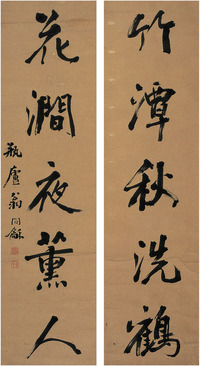 竹潭秋洗鶴
花澗夜薰人
瓶廬翁同龢